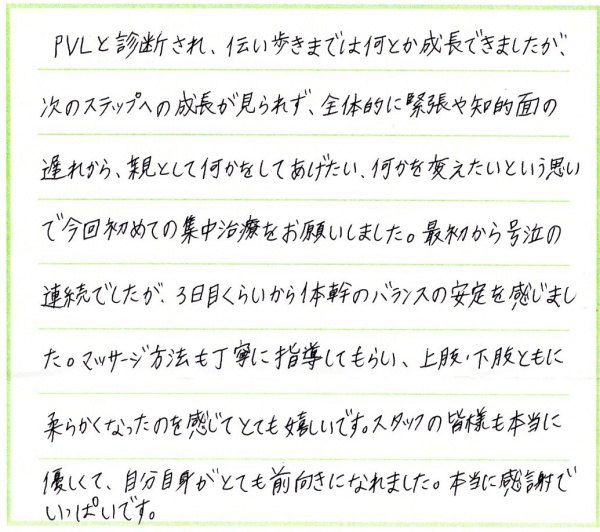 PVLと診断され、伝い歩きまでは何とか成長できましたが、
次のステップへの成長が見られず、全体的に緊張や知的面の
遅れから、親として何かをしてあげたい、何かを変えたいという思い
で今回初めての集中治療をお願いしました。最初から号泣の
連続でしたが、3日目くらいから体幹のバランスの安定を感じまし
た。マッサージ方法も丁寧に指導してもらい、上肢・下肢ともに
柔らかくなったのを感じてとても嬉しいです。スタッフの皆様も本当に
優しくて、自分自身がとても前向きになれました。本当に感謝で
いっぱいです。